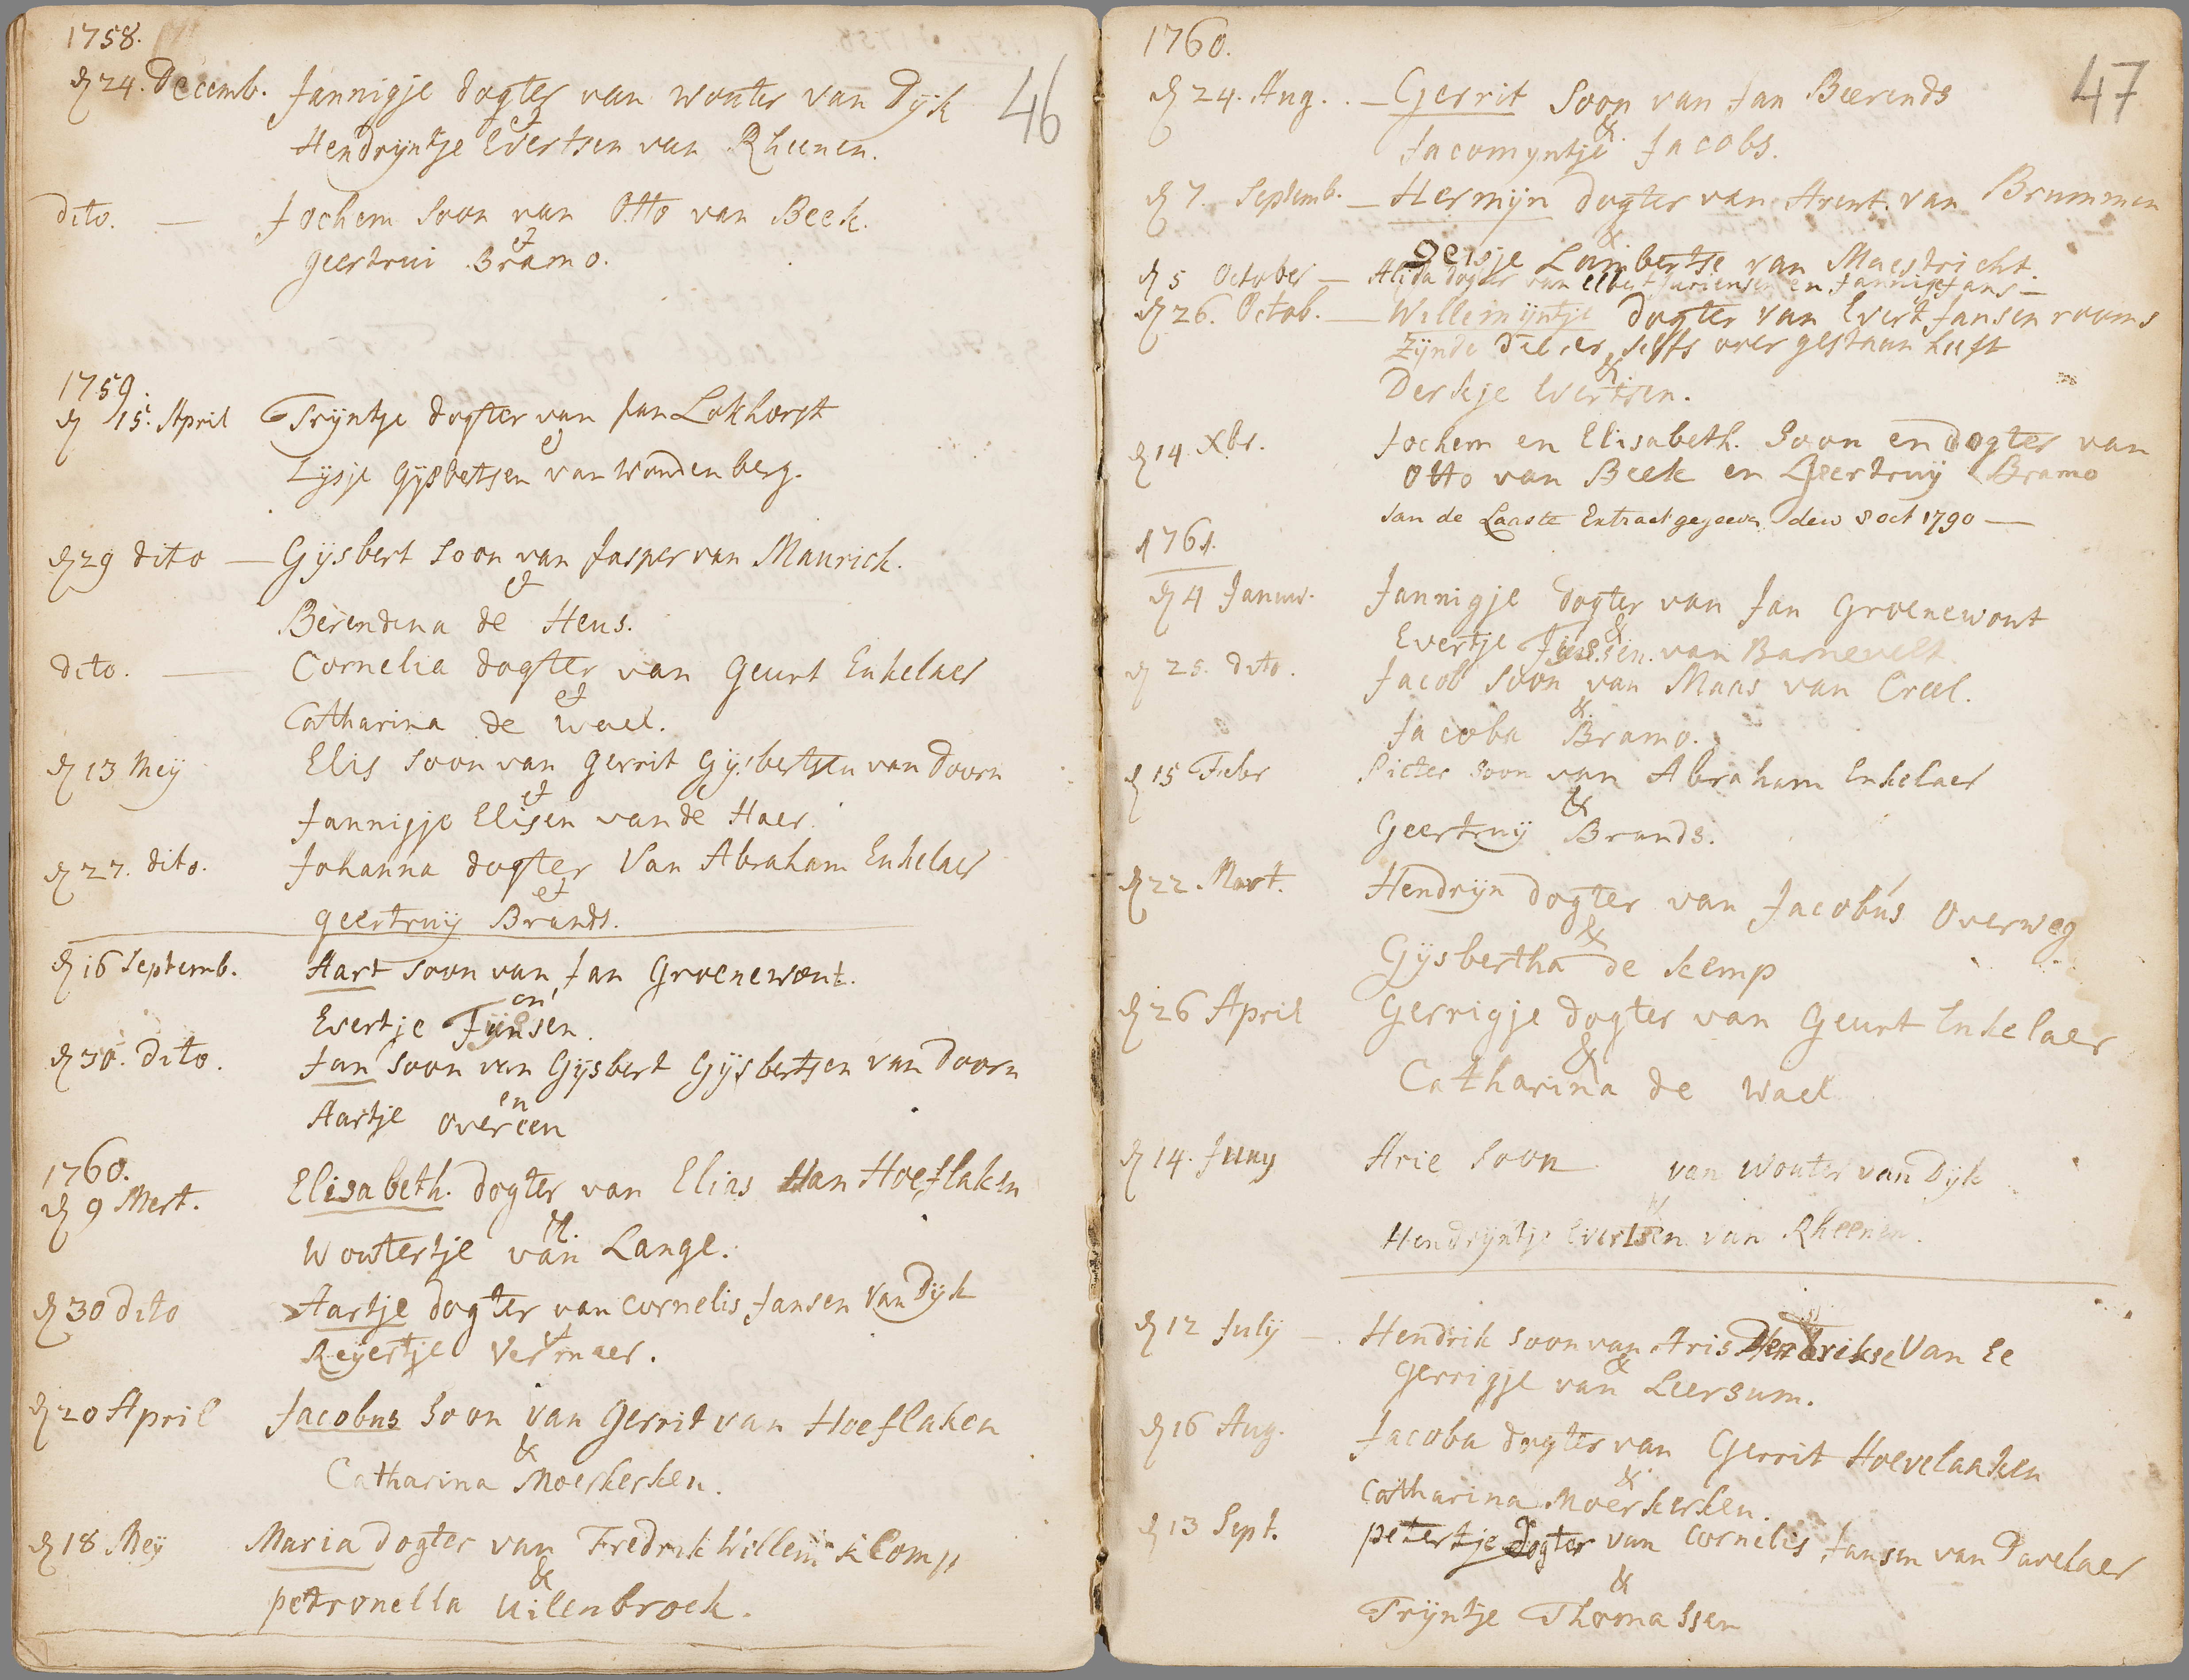 1758.
46
d 24. Decemb. Jannigje dogter van wouter van Dyk
et
Hendryntje Evertsen van Rheenen.
dito. — Jochem soon van Otto van Beek.
et
geertrui Bramo.
1759.
d 15. April Tryntje dogter van Jan Lokhorst
et
Lysje Gysbetsen van Woudenberg.
d 29 dito — Gysbert soon van Jasper van Maurick.
et
Berendina de Heus.
dito. — Cornelia dogter van Geurt Enkelaer
et
Catharina de Wael.
d 13 Mey Elis soon van Gerrit Gysbertsen van Doorn
et
Jannigje Elisen van de Haer.
d 27. dito. Johanna dogter Van Abraham Enkelaer
et
geertruy Brands.
d 16 Septemb. Aart soon van Jan Groenewout.
en
Evertje Tynsen.
d 30. dito. Jan soon van Gysbert Gysbertsen van Doorn
en
Aartje overeen
1760.
d 9 Mert. Elisabeth. dogter van Elias Van Hoeflaken
et.
Woutertje van Lange.
d 30 dito Aartje dogter van Cornelis Jansen Van Dyk
et
Reyertje Vermaer.
d 20 April Jacobus soon van Gerrit van Hoeflaken
&
Catharina Moerkerken.
d 18 Mey Maria dogter van Fredrik Willem Klomp
&
petronella uilenbroek.
1760.
47
d 24. Aug. — Gerrit soon van Jan Beerends
&
Jacomyntje Jacobs.
d 7. Septemb. — Hermyn dogter van Arent. van Brummen
&
geisje Lambertse van Maestricht.
d 5 October — Alida dogter van Elbert Juriensen en Jannigje Jans —
d 26. Octob. — Willemyntje dogter van Evert Jansen rooms
zynde die er selffs over gestaan heeft
&
Derkje Evertsen.
d 14. Xbr. Jochem en Elisabeth. Soon en dogter van
Otto van Beek en Geertruy Bramo
van de Laaste Extract gegeven den 8 oct 1790 —
1761.
d 4 Januar. Jannigje dogter van Jan Groenewout
&
Evertje Tynssen. van Barnevelt
d 25. dito. Jacob soon van Maas van Creel.
&
Jacoba Bramo.
d 15 Febr Pieter soon van Abraham Enkelaer
&
Geertruy Brands.
d 22. Mart. Hendryn dogter van Jacobus Overweg
&
Gysbertha de kemp
d 26 April Gerrigje dogter van Geurt Enkelaer
&
Catharina de Wael
d 14. Juny Arie soon van Wouter van Dyk
&
Hendryntje Evertsen van Rheenen.
d 12 July — Hendrik soon van Aris Hendrikse Van Ee
&
Gerrigje van Leersum.
d 16 Aug. Jacoba dogter van Gerrit Hoevelaaken
&
Catharina Moerkerken.
d 13 Sept. petertje Dogter van Cornelis Jansen van Davelaer
&
Tryntje Thomassen